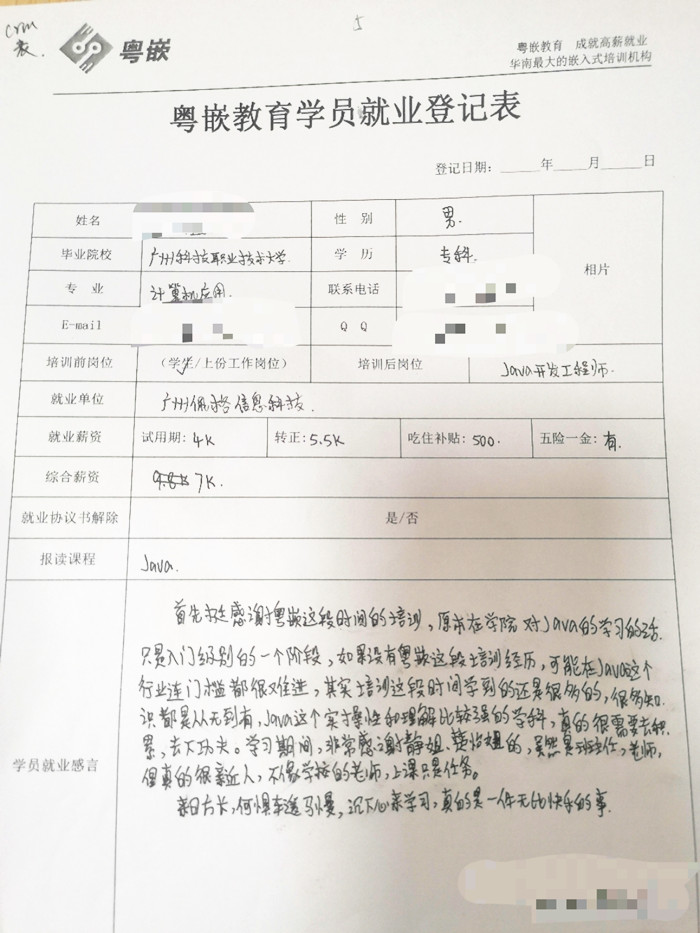 crm
表.
5
粤嵌
粤嵌教育 成就高薪就业
华南最大的嵌入式培训机构
粤嵌教育学员就业登记表
登记日期：______年_____月______日
姓名 性 别 男. 相片
毕业院校 广州科技职业技术大学. 学 历 专科.
专 业 计算机应用. 联系电话
E-mail Q Q
培训前岗位 （学生/上份工作岗位） 培训后岗位 Java开发工程师.
就业单位 广州佩洛信息科技.
就业薪资 试用期：4K 转正：5.5K 吃住补贴：500. 五险一金：有.
综合薪资 7K.
就业协议书解除 是/否
报读课程 Java.
学员就业感言
首先就是感谢粤嵌这段时间的培训，原本在学院对Java的学习的话
只是入门级别的一个阶段，如果没有粤嵌这段培训经历，可能在Java这个
行业连门槛都很难进，其实培训这段时间学到的还是很多的，很多知
识都是从无到有，Java这个实操性和理解比较强的学科，真的很需要去积
累，去下功夫。学习期间，非常感谢静姐、 姐的，虽然是班主任，老师，
但真的很亲近人，不像学校的老师，上课只是任务。
来日方长，何惧车遥马慢，沉下心来学习，真的是一件无比快乐的事.